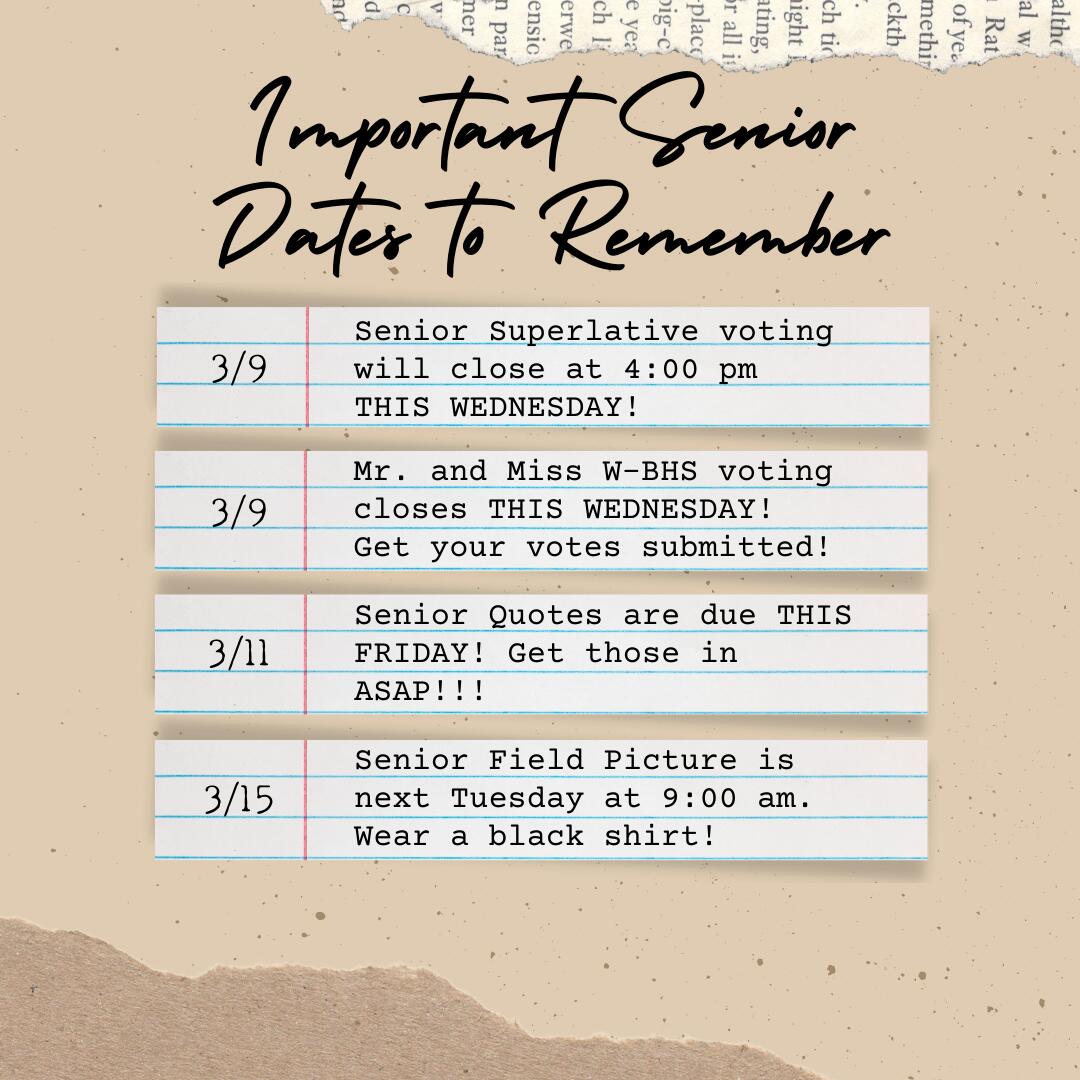 Important Senior
Dates to Remember
3/9
Senior Superlative voting
will close at 4:00 pm
THIS WEDNESDAY!
3/9
Mr. and Miss W-BHS voting
closes THIS WEDNESDAY!
Get your votes submitted!
3/11
Senior Quotes are due THIS
FRIDAY! Get those in
ASAP!!!
3/15
Senior Field Picture is
next Tuesday at 9:00 am.
Wear a black shirt!